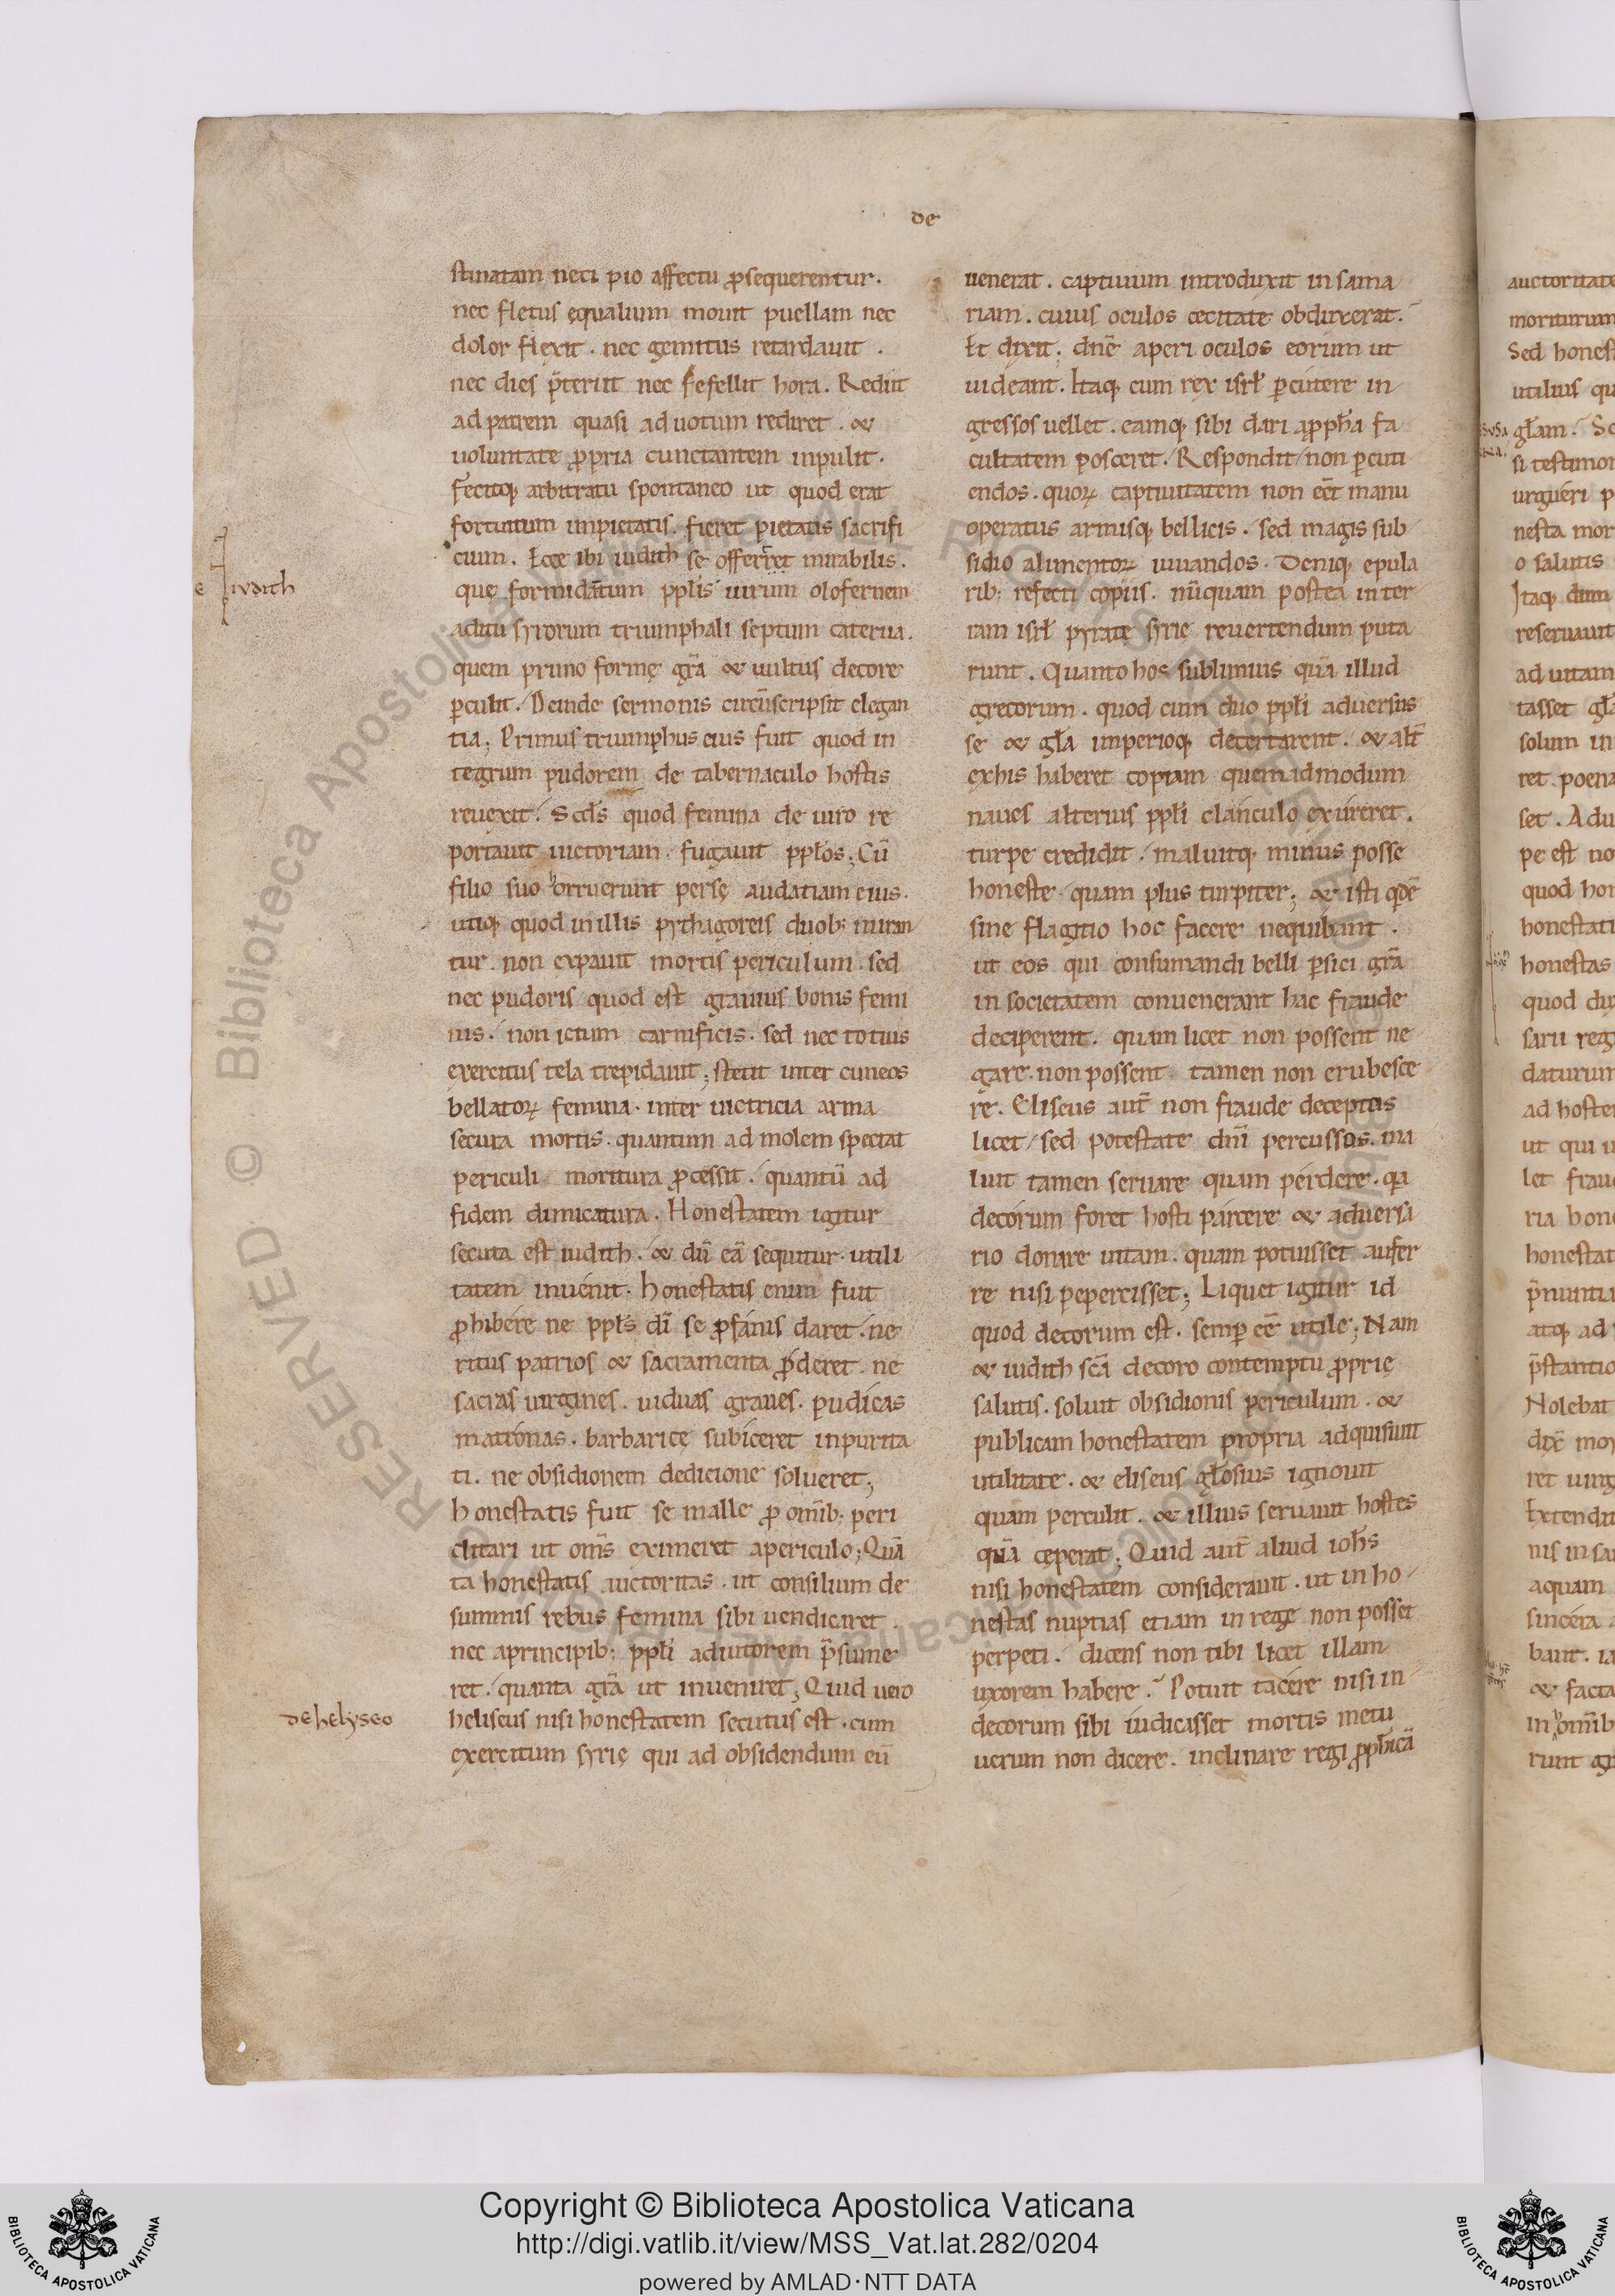 de
stinatam neci pio affectu ꝓsequerentur.
nec fletus ęqualium mouit puellam nec
dolor flexit. nec gemitus retardauit.
nec dies p̄teriit nec fefellit hora. Rediit
ad patrem quasi ad uotum rediret. &
uoluntate ꝓpria cunctantem inpulit.
fecitq; arbitratu spontaneo ut quod erat
fortuitum impietatis. fieret pietatis sacrifi
cium. Ecce ibi iudith se offerret mirabilis.
e iudith
quę formidatum pplis uirum olofernem
aditu syrorum triumphali septum caterua.
quem primo formę grā & uultus decore
ꝑculit. Deinde sermonis circūscripsit elegan
tia; Primus triumphus eius fuit quod in
tegrum pudorem de tabernaculo hostis
reuexit. Scds quod femina de uiro re
portauit uictoriam. fugauit pplos; Cū
filio suo orruerunt persę audatiam eius.
utiq; quod in illis pythagoreis duob; miran
tur. non expauit mortis periculum. sed
nec pudoris quod est grauius bonis femi
nis. non ictum carnificis. sed nec totius
exercitus tela trepidauit; stetit inter cuneos
bellatoꝝ femina. inter uictricia arma
secura mortis. quantum ad molem spectat
periculi moritura ꝓcessit. quantū ad
fidem dimicatura. Honestatem igitur
secuta est iudith. & dū eā sequitur. utili
tatem inuenit. honestatis enim fuit
ꝓhibere ne ppls dī se ꝓfanis daret. ne
ritus patrios & sacramenta ꝓderet. ne
sacras uirgines. uiduas graues. pudicas
matronas. barbaricę subiceret inpurita
ti. ne obsidionem dedicione solueret;
honestatis fuit se malle ꝓ omīb; peri
clitari ut om̄s eximeret apericulo; Quā
ta honestatis auctoritas. ut consilium de
summis rebus femina sibi uendicaret.
nec aprincipib; ppli adiutorem p̄sume
ret. quanta grā ut inueniret; Quid uero
de helyseo
heliseus nisi honestatem secutus est. cum
exercitum syrię qui ad obsidendum eū
uenerat. captiuum introduxit in sama
riam. cuius oculos cecitate obduxerat.
Et dixit; dn̄e aperi oculos eorum ut
uideant. Itaq; cum rex isrł ꝑcutere in
gressos uellet. eamq; sibi dari a ꝓpha fa
cultatem posceret. Respondit non ꝑcuti
endos. quoꝝ captiuitatem non eēt manu
operatus armisq; bellicis. sed magis sub
sidio alimentoꝝ iuuandos. Deniq; epula
rib; refecti copiis. nūquam postea in ter
ram isrł pyrate syrię reuertendum puta
runt. Quanto hoc sublimius quā illud
grecorum. quod cum duo ppli aduersus
se & gła imperioq; decertarent. & alt̄
exhis haberet copiam quemadmodum
naues alterius ppli clanculo exureret.
turpe credidit. maluitq; minus posse
honeste quam plus turpiter; & isti qdē
sine flagitio hoc facere nequibant.
ut eos qui consumandi belli ꝑsici grā
in societatem conuenerant hac fraude
deciperent. quam licet non possent ne
gare. non possent tamen non erubesce
re. Eliseus aut̄ non fraude deceptos
licet sed potestate dn̄i percussos. ma
luit tamen seruare quam perdere. qa
decorum foret hosti parcere & aduersa
rio donare uitam. quam potuisset aufer
re nisi pepercisset; Liquet igitur id
quod decorum est. semꝑ eē utile; Nam
& iudith scā decoro contemptu ꝓprię
salutis. soluit obsidionis periculum. &
publicam honestatem propria adquisiuit
utilitate. & eliseus głosius ignouit
quam perculit. & illius seruauit hostes
quā ceperat; Quid aut̄ aliud iohs
nisi honestatem considerauit. ut in ho
nestas nuptias etiam in rege non posset
perpeti. dicens non tibi licet illam
uxorem habere. Potuit tacere nisi in
decorum sibi iudicasset mortis metu
uerum non dicere. inclinare regi ꝓphicā
Copyright © Biblioteca Apostolica Vaticana
http://digi.vatlib.it/view/MSS_Vat.lat.282/0204
powered by AMLAD·NTT DATA
BIBLIOTECA APOSTOLICA VATICANA
BIBLIOTECA APOSTOLICA VATICANA